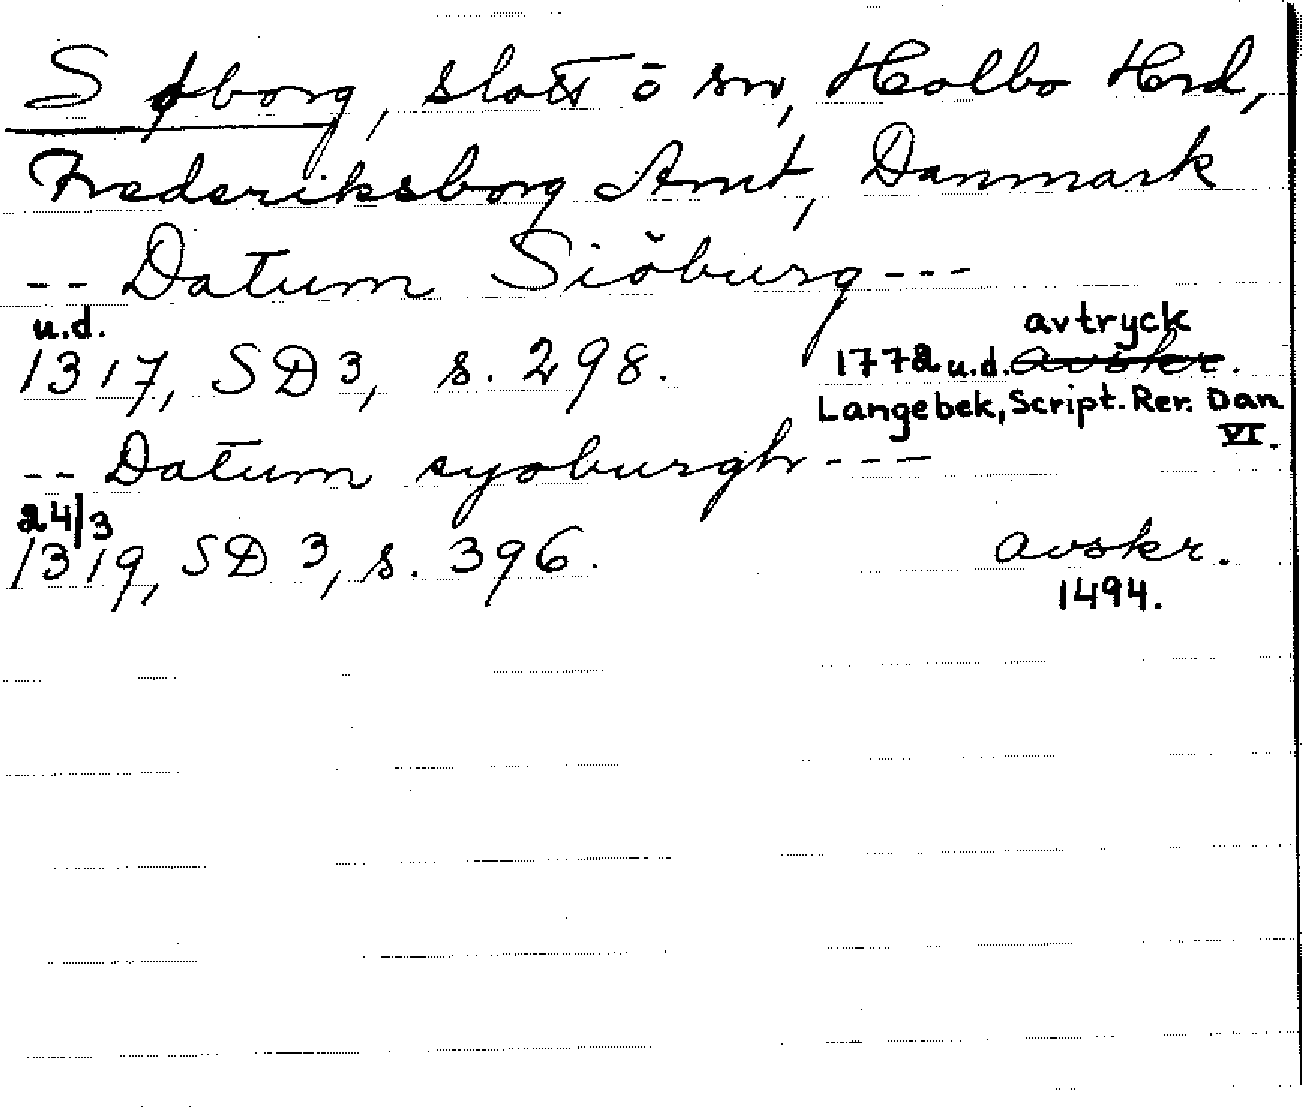 Søborg, slott ō sn, Holbo Hrd,
Frederiksborg Amt, Danmark
-- Datum Siöburg ---
u.d.
1317, SD 3, s. 298.
avtryck
1772 u.d. avskr.
Langebek, Script. Rer. Dan
VI.
-- Datum syoburgh ---
24/3
1319, SD 3, s. 396.
avskr.
1494.